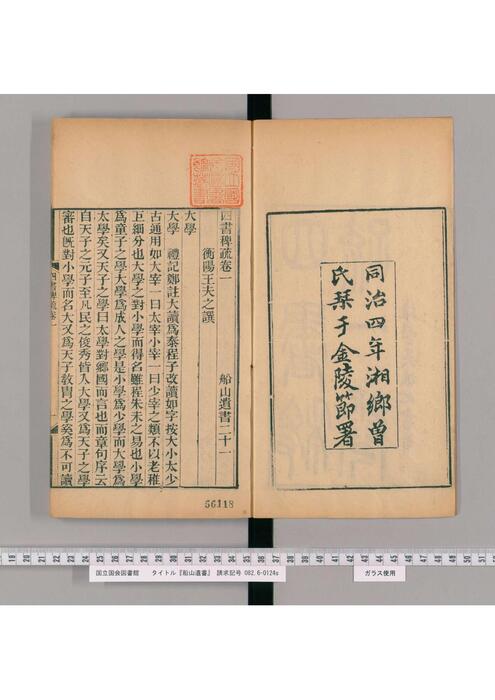 同治四年湘鄉曾
氏栞于金陵節署
四書稗疏卷一
船山遺書二十一
衡陽王夫之譔
大學
大學 禮記鄭註大讀爲泰程子改讀如字按大小太少
古通用如大宰一曰太宰小宰一曰少宰之類不以老稚
巨細分也大學之對小學而得名雖程朱未之易也小學
爲童子之學大學爲成人之學是小學爲少學而大學爲
太學矣又天子之學曰太學對鄉國而言也而章句序云
自天子之元子至凡民之俊秀皆入大學又爲天子之學
審也旣對小學而名大又爲天子敎胄之學奚爲不可讀
四書稗疏卷一
一
56118
17 18 19 20 21 22 23 24 25 26 27 28 29 30 31 32 33 34 35 36 37 38 39 40 41 42 43 44 45 46 47 48 49 50 51 52 53 54
国立国会図書館 タイトル『船山遺書』 請求記号 082.6-0124s
ガラス使用